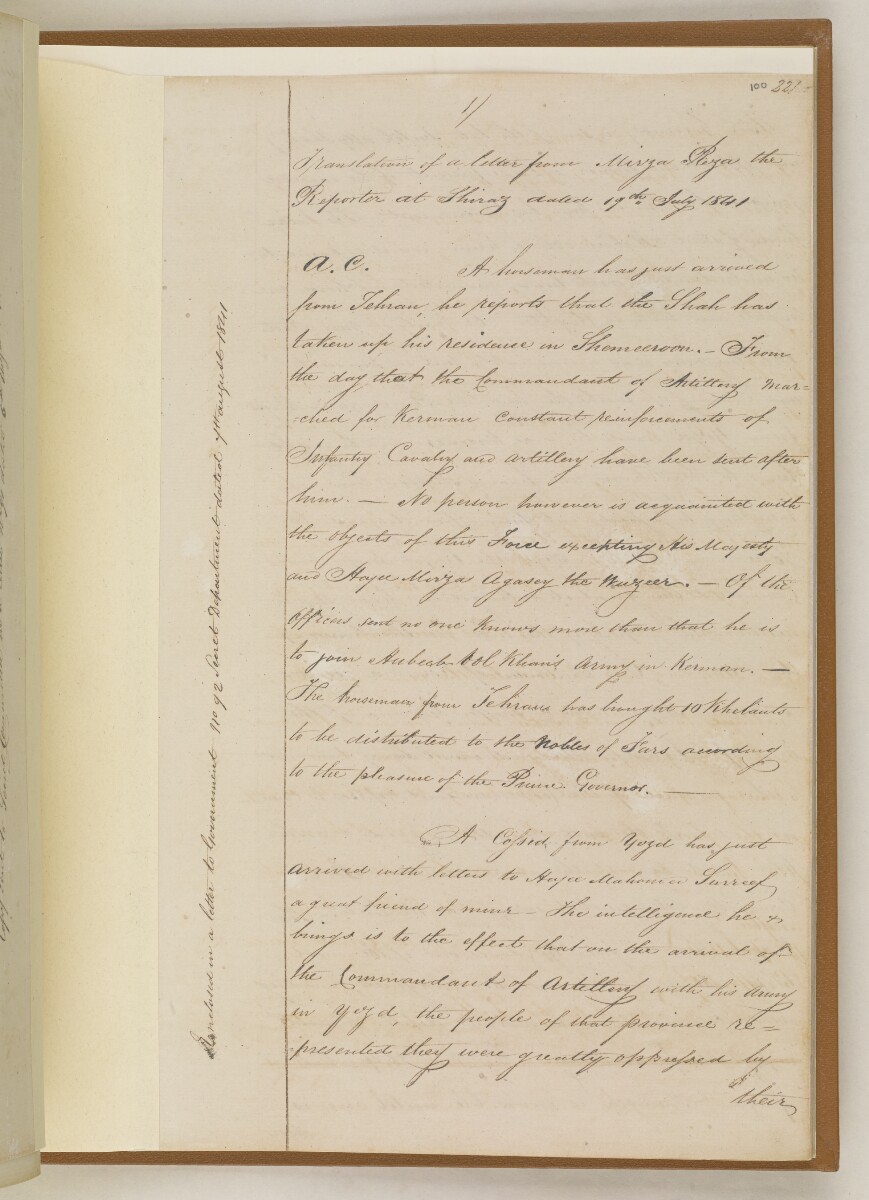 100 221
1/
Translation of a letter from Mirza Reza the
Reporter at Shiraz dated 19th July 1841
A.C. A horseman has just arrived
from Tehran, he reports that the Shah has
taken up his residence in Shemeeroon. - From
the day that the Commandant of Artillery mar-
-ched for Kerman constant reinforcements of
Infantry Cavalry and Artillery have been sent after
him. - No person however is acquainted with
the objects of this Force excepting His Majesty
and Hajee Mirza Agasey the Wuzeer. - Of the
Officers sent no one knows more than that he is
to join Hubeeb Ool Khan's Army in Kerman. -
The horseman from Tehran has brought 10 Khilauts
to be distributed to the Nobles of Fars according
to the pleasure of the Prince Governor. -
A Cossid from Yezd has just
arrived with letters to Hajee Mahomed Surreef
a great friend of mine - The intelligence he
brings is to the effect that on the arrival of
the Commandant of Artillery with his Army
in Yezd, the people of that province re=
presented they were greatly oppressed by
their
Enclosed in a letter to Government No 92 Secret Department dated 7th August 1841